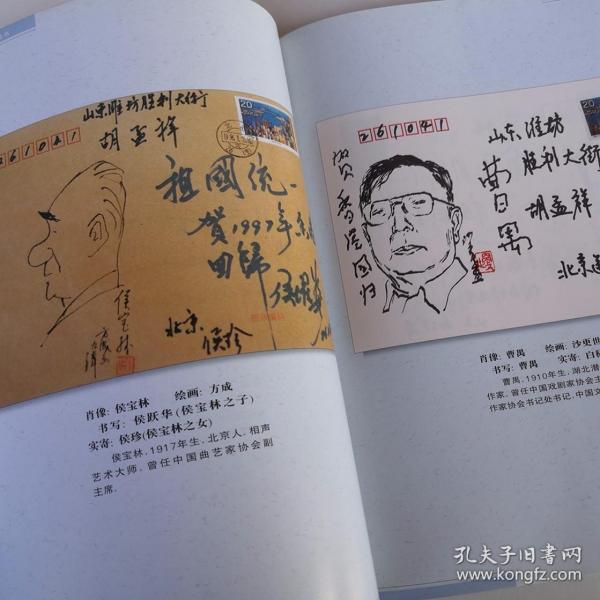 山东潍坊胜利大街
胡孟祥
261041
20
祖國統一
贺1997年
回歸
侯跃华
北京
侯珍
侯宝林
方成
肖像: 侯宝林 绘画: 方成
书写: 侯跃华(侯宝林之子)
实寄: 侯珍(侯宝林之女)
侯宝林,1917年生,北京人,相声
艺术大师,曾任中国曲艺家协会副
主席。
261041
20
山东潍坊
胜利大街
胡孟祥
曹禺
贺香港回归
北京
肖像: 曹禺 绘画: 沙更世
书写: 曹禺 实寄:
曹禺,1910年生,湖北潜
作家,曾任中国戏剧家协会主
作家协会书记处书记,中国文
孔夫子旧书网
www.kongfz.com